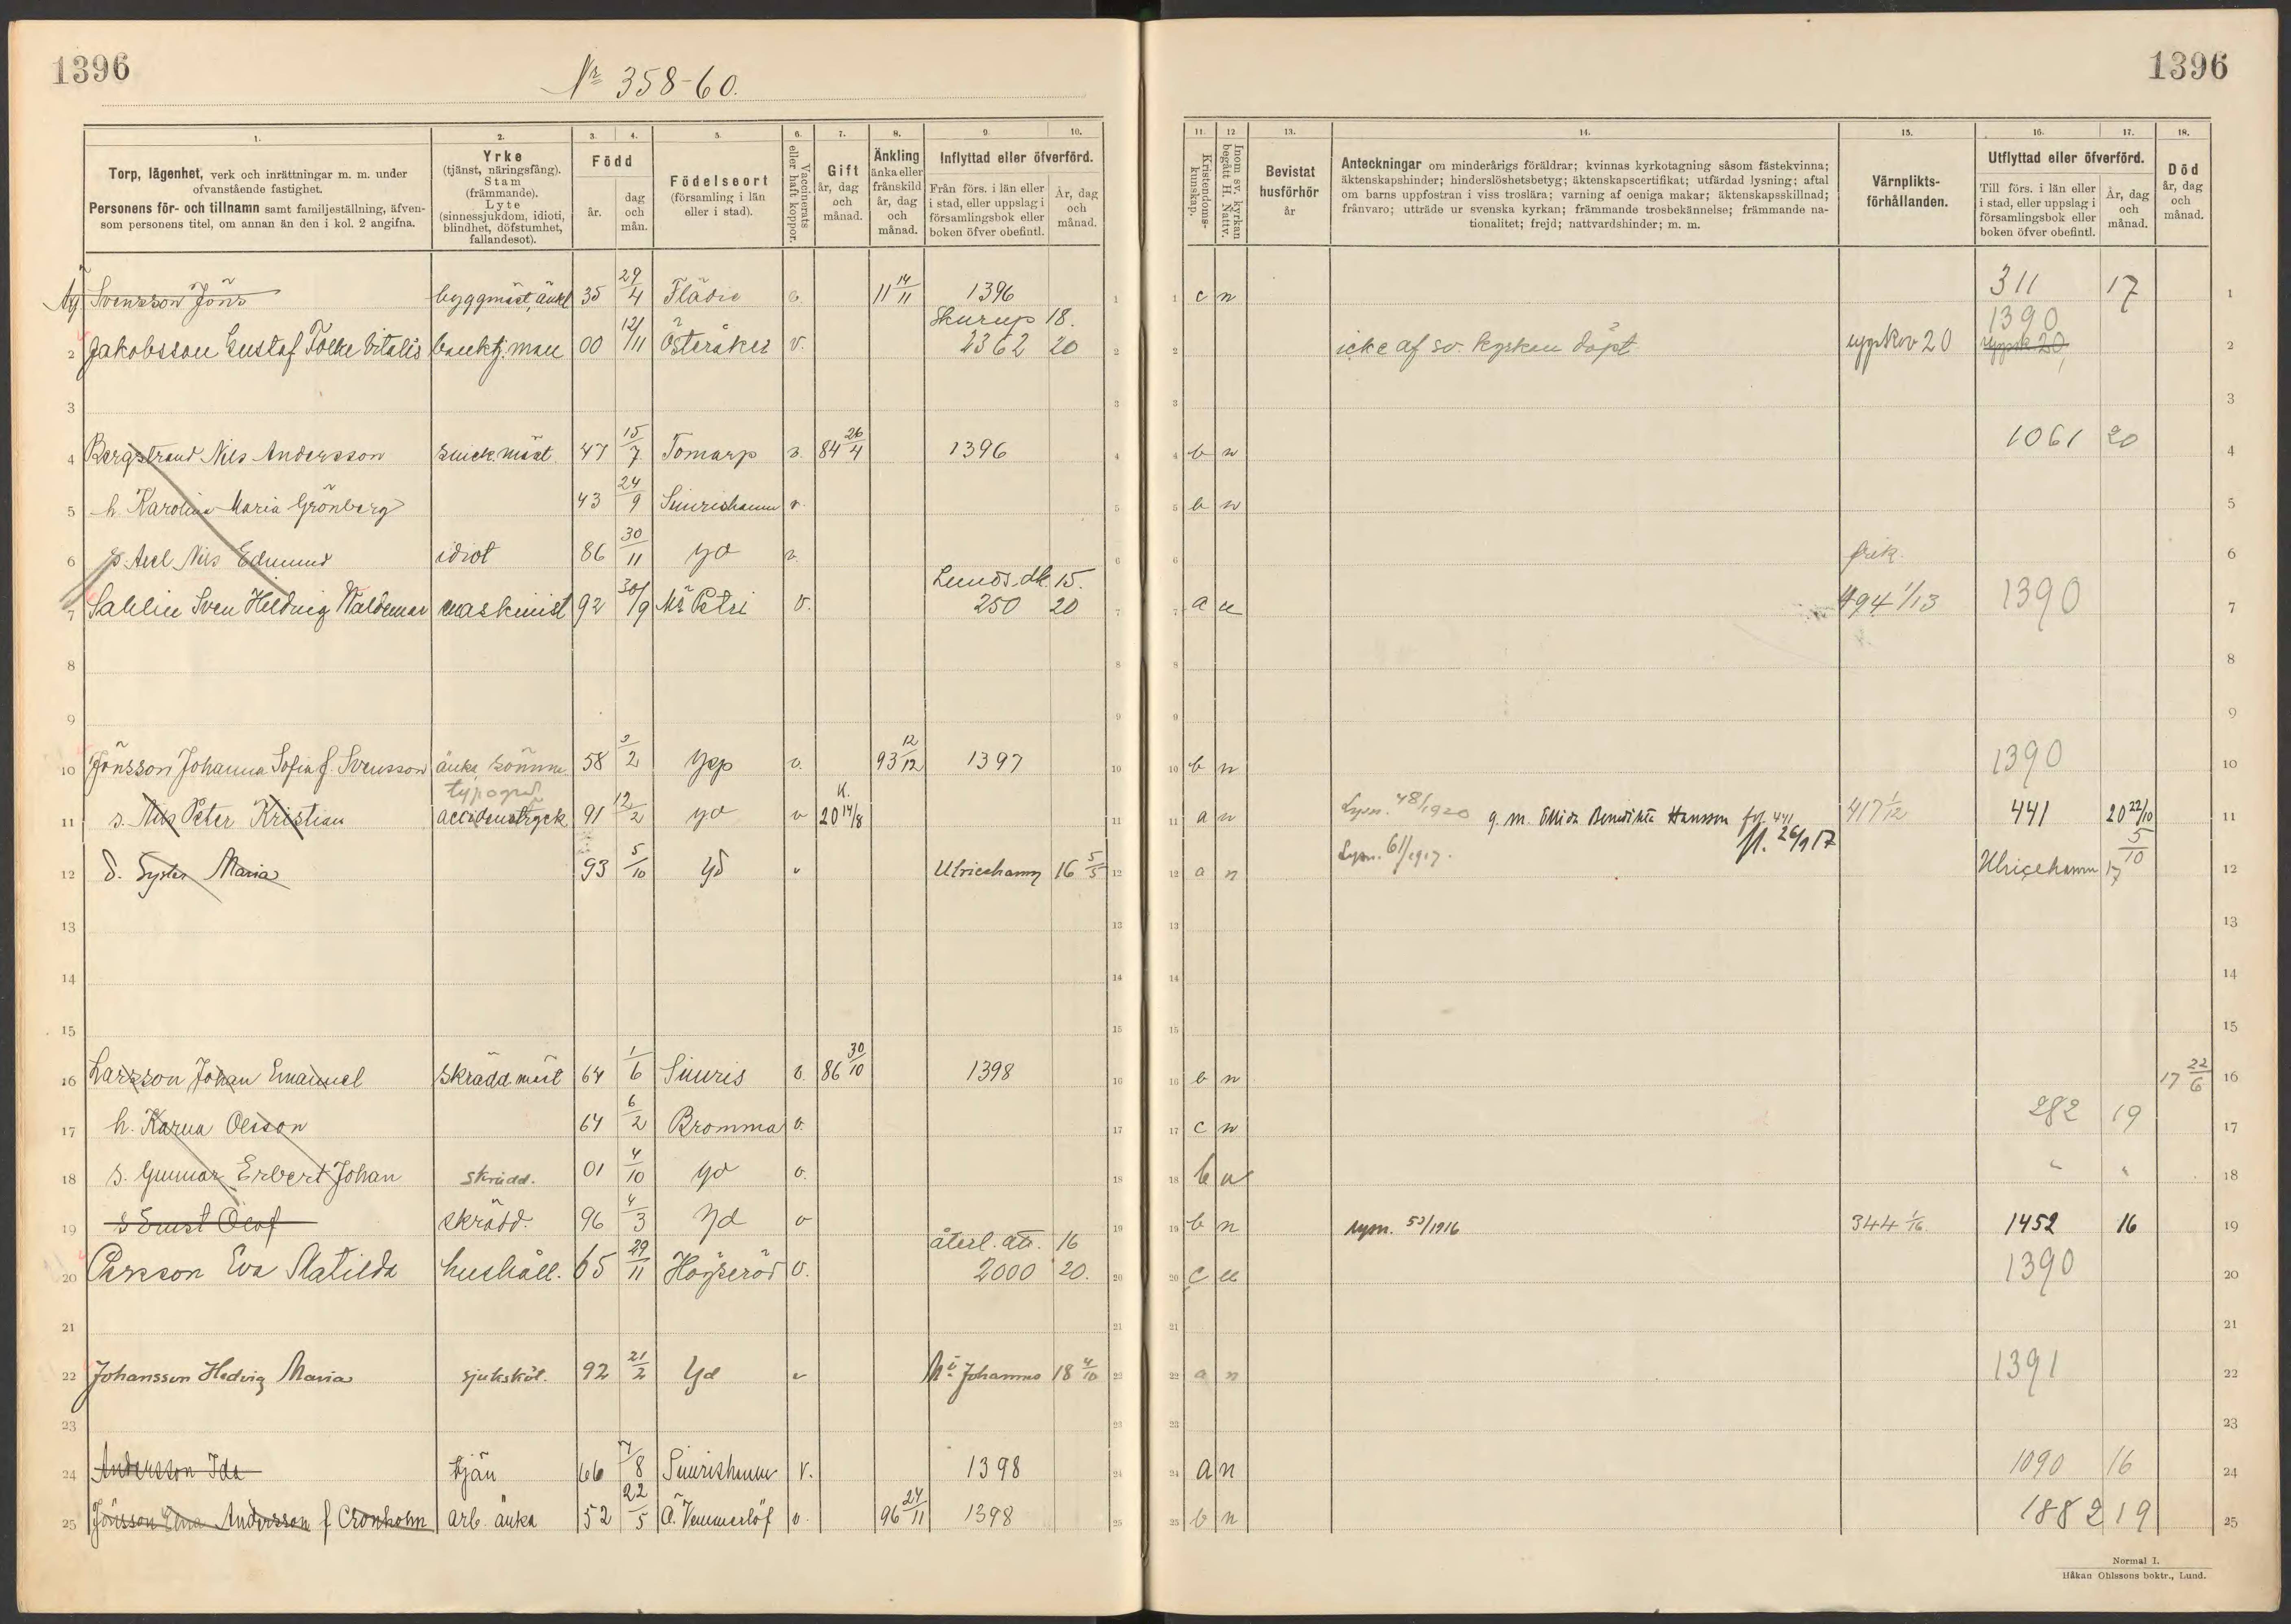 1396
Nr 358-60.
1396
1. 2. 3. 4. 5. 6. 7. 8. 9. 10.
Torp, lägenhet, verk och inrättningar m. m. under
ofvanstående fastighet.
Personens för- och tillnamn samt familjeställning, äfven-
som personens titel, om annan än den i kol. 2 angifna.
Yrke
(tjänst, näringsfång).
Stam
(främmande).
Lyte
(sinnessjukdom, idioti,
blindhet, döfstumhet,
fallandesot).
Född
år.
dag
och
mån.
Födelseort
(församling i län
eller i stad).
Vaccinerats
eller haft koppor.
Gift
år, dag
och
månad.
Änkling
änka eller
frånskild
år, dag
och
månad.
Inflyttad eller öfverförd.
Från förs. i län eller
i stad, eller uppslag i
församlingsbok eller
boken öfver obefintl.
År, dag
och
månad.
11. 12 13. 14. 15. 16. 17. 18.
Kristendoms-
kunskap.
Inom sv. kyrkan
begått H. Nattv.
Bevistat
husförhör
år
Anteckningar om minderårigs föräldrar; kvinnas kyrkotagning såsom fästekvinna;
äktenskapshinder; hinderslöshetsbetyg; äktenskapscertifikat; utfärdad lysning; aftal
om barns uppfostran i viss troslära; varning af oeniga makar; äktenskapsskillnad;
frånvaro; utträde ur svenska kyrkan; främmande trosbekännelse; främmande na-
tionalitet; frejd; nattvardshinder; m. m.
Värnplikts-
förhållanden.
Utflyttad eller öfverförd.
Till förs. i län eller
i stad, eller uppslag i
församlingsbok eller
boken öfver obefintl.
År, dag
och
månad.
Död
år, dag
och
månad.
Svensson Jöns byggmäst, änkl 35 29/4 Flädie v. 11 14/11 1396 1 1 c n 311 17 1
Skurup 18. 1390
2 Jakobsson Gustaf Folke Vitalis banktj.man 00 12/11 Österåker v. 2362 20 2 2 icke af sv. kyrkan döpt uppskov 20 uppsk 20 2
3 3 3 3
4 Bergstrand Nils Andersson snick.mäst. 47 15/7 Tomarp v. 84 26/4 1396 4 4 b n 1061 20 4
5 h. Karolina Maria Grönberg 43 24/9 Simrishamn v. 5 5 b n 5
6 s. Axel Nils Edmund idiot 86 30/11 Yd v. 6 6 frik. 6
Lunds dk. 15.
7 Sahlin Sven Hildvig Valdemar maskinist 92 30/9 Mö Petri v. 250 20 7 7 a n 494 1/13 1390 7
8 8 8 8
9 9 9 9
10 Jönsson Johanna Sofia f. Svensson änka, sömm 58 2/2 Ysp v. 93 12/12 1397 10 10 b n 1390 10
typograf K.
11 s. Nils Peter Kristian accidenstryck 91 12/2 yd v 20 14/8 11 11 a n Lysn. 48/1920 g. m. Ellida Benedikta Hansson fol. 441 417 1/12 441 20 22/10 11
12 d. Syster Maria 93 5/10 Yd v Ulricehamn 16 5/5 12 12 a n Lysn. 61/1917. fl. 26/9 17 Ulricehamn 17 5/10 12
13 13 13 13
14 14 14 14
15 15 15 15
16 Larsson Johan Emanuel skrädd.mäst 64 1/6 Simris v. 86 30/10 1398 16 16 b n 17 22/6 16
17 h. Karna Olsson 64 6/2 Bromma v. 17 17 c n 282 19 17
18 s. Gunnar Erbert Johan skrädd. 01 4/10 Yd v. 18 18 b n " " 18
19 s Ernst Olof skrädd. 96 4/3 Yd v 19 19 b n lysn. 53/1916 344 1/16 1452 16 19
återl. att. 16
20 Persson Eva Matilda hushåll. 65 29/11 Högseröd v. 2000 20. 20 20 c n 1390 20
21 21 21 21
22 Johansson Hedvig Maria sjuksköt. 92 21/2 Yd v Mö Johannes 18 4/10 22 22 a n 1391 22
23 23 23 23
24 Andersson Ida tjän 66 7/8 Simrishamn v. 1398 24 24 a n 1090 16 24
25 Jönsson Elna Andersson f Cronholm arb. änka 52 22/5 Ö. Vemmerlöf v. 96 24/11 1398 25 25 b n 1882 19 25
Normal 1.
Håkan Ohlssons boktr., Lund.